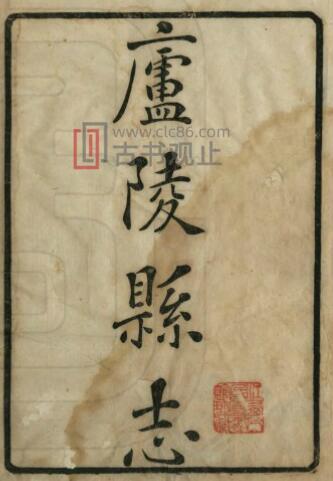 廬陵縣志
www.clc86.com
古书观止